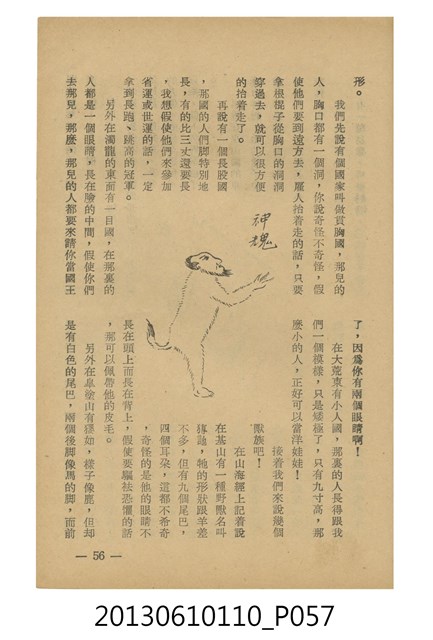 形。
我們先說有個國家叫做貫胸國，那兒的
人，胸口都有一個洞，你說奇怪不奇怪，假
使他們要到遠方去，雇人抬着走的話，只要
拿根棍子從胸口的洞洞
穿過去，就可以很方便
的抬着走了。
再說有一個長股國
，那國的人們脚特別地
長，有的比三丈還要長
，我想假使他們來參加
省運或世運的話，一定
拿到長跑、跳高的冠軍。
另外在濁龍的東面有一目國，在那裏的
人都是一個眼睛，長在臉的中間，假使你們
去那兒，那麼，那兒的人都要來請你當國王
神魂
了，因爲你有兩個眼睛啊！
在大荒東有小人國，那裏的人長得跟我
們一個模樣，只是矮極了，只有九寸高，那
麼小的人，正好可以當洋娃娃！
接着我們來說幾個
獸族吧！
在山海經上記着說
在基山有一種野獸名叫
猼訑，牠的形狀跟羊差
不多，但有九個尾巴，
四個耳朶，這都不希奇
，奇怪的是他的眼睛不
長在頭上而長在背上，假使要驅袪恐懼的話
，那可以佩帶他的皮毛。
另外在皐塗山有玃如，樣子像鹿，但却
是有白色的尾巴，兩個後脚像馬的脚，而前
— 56 —
20130610110_P057